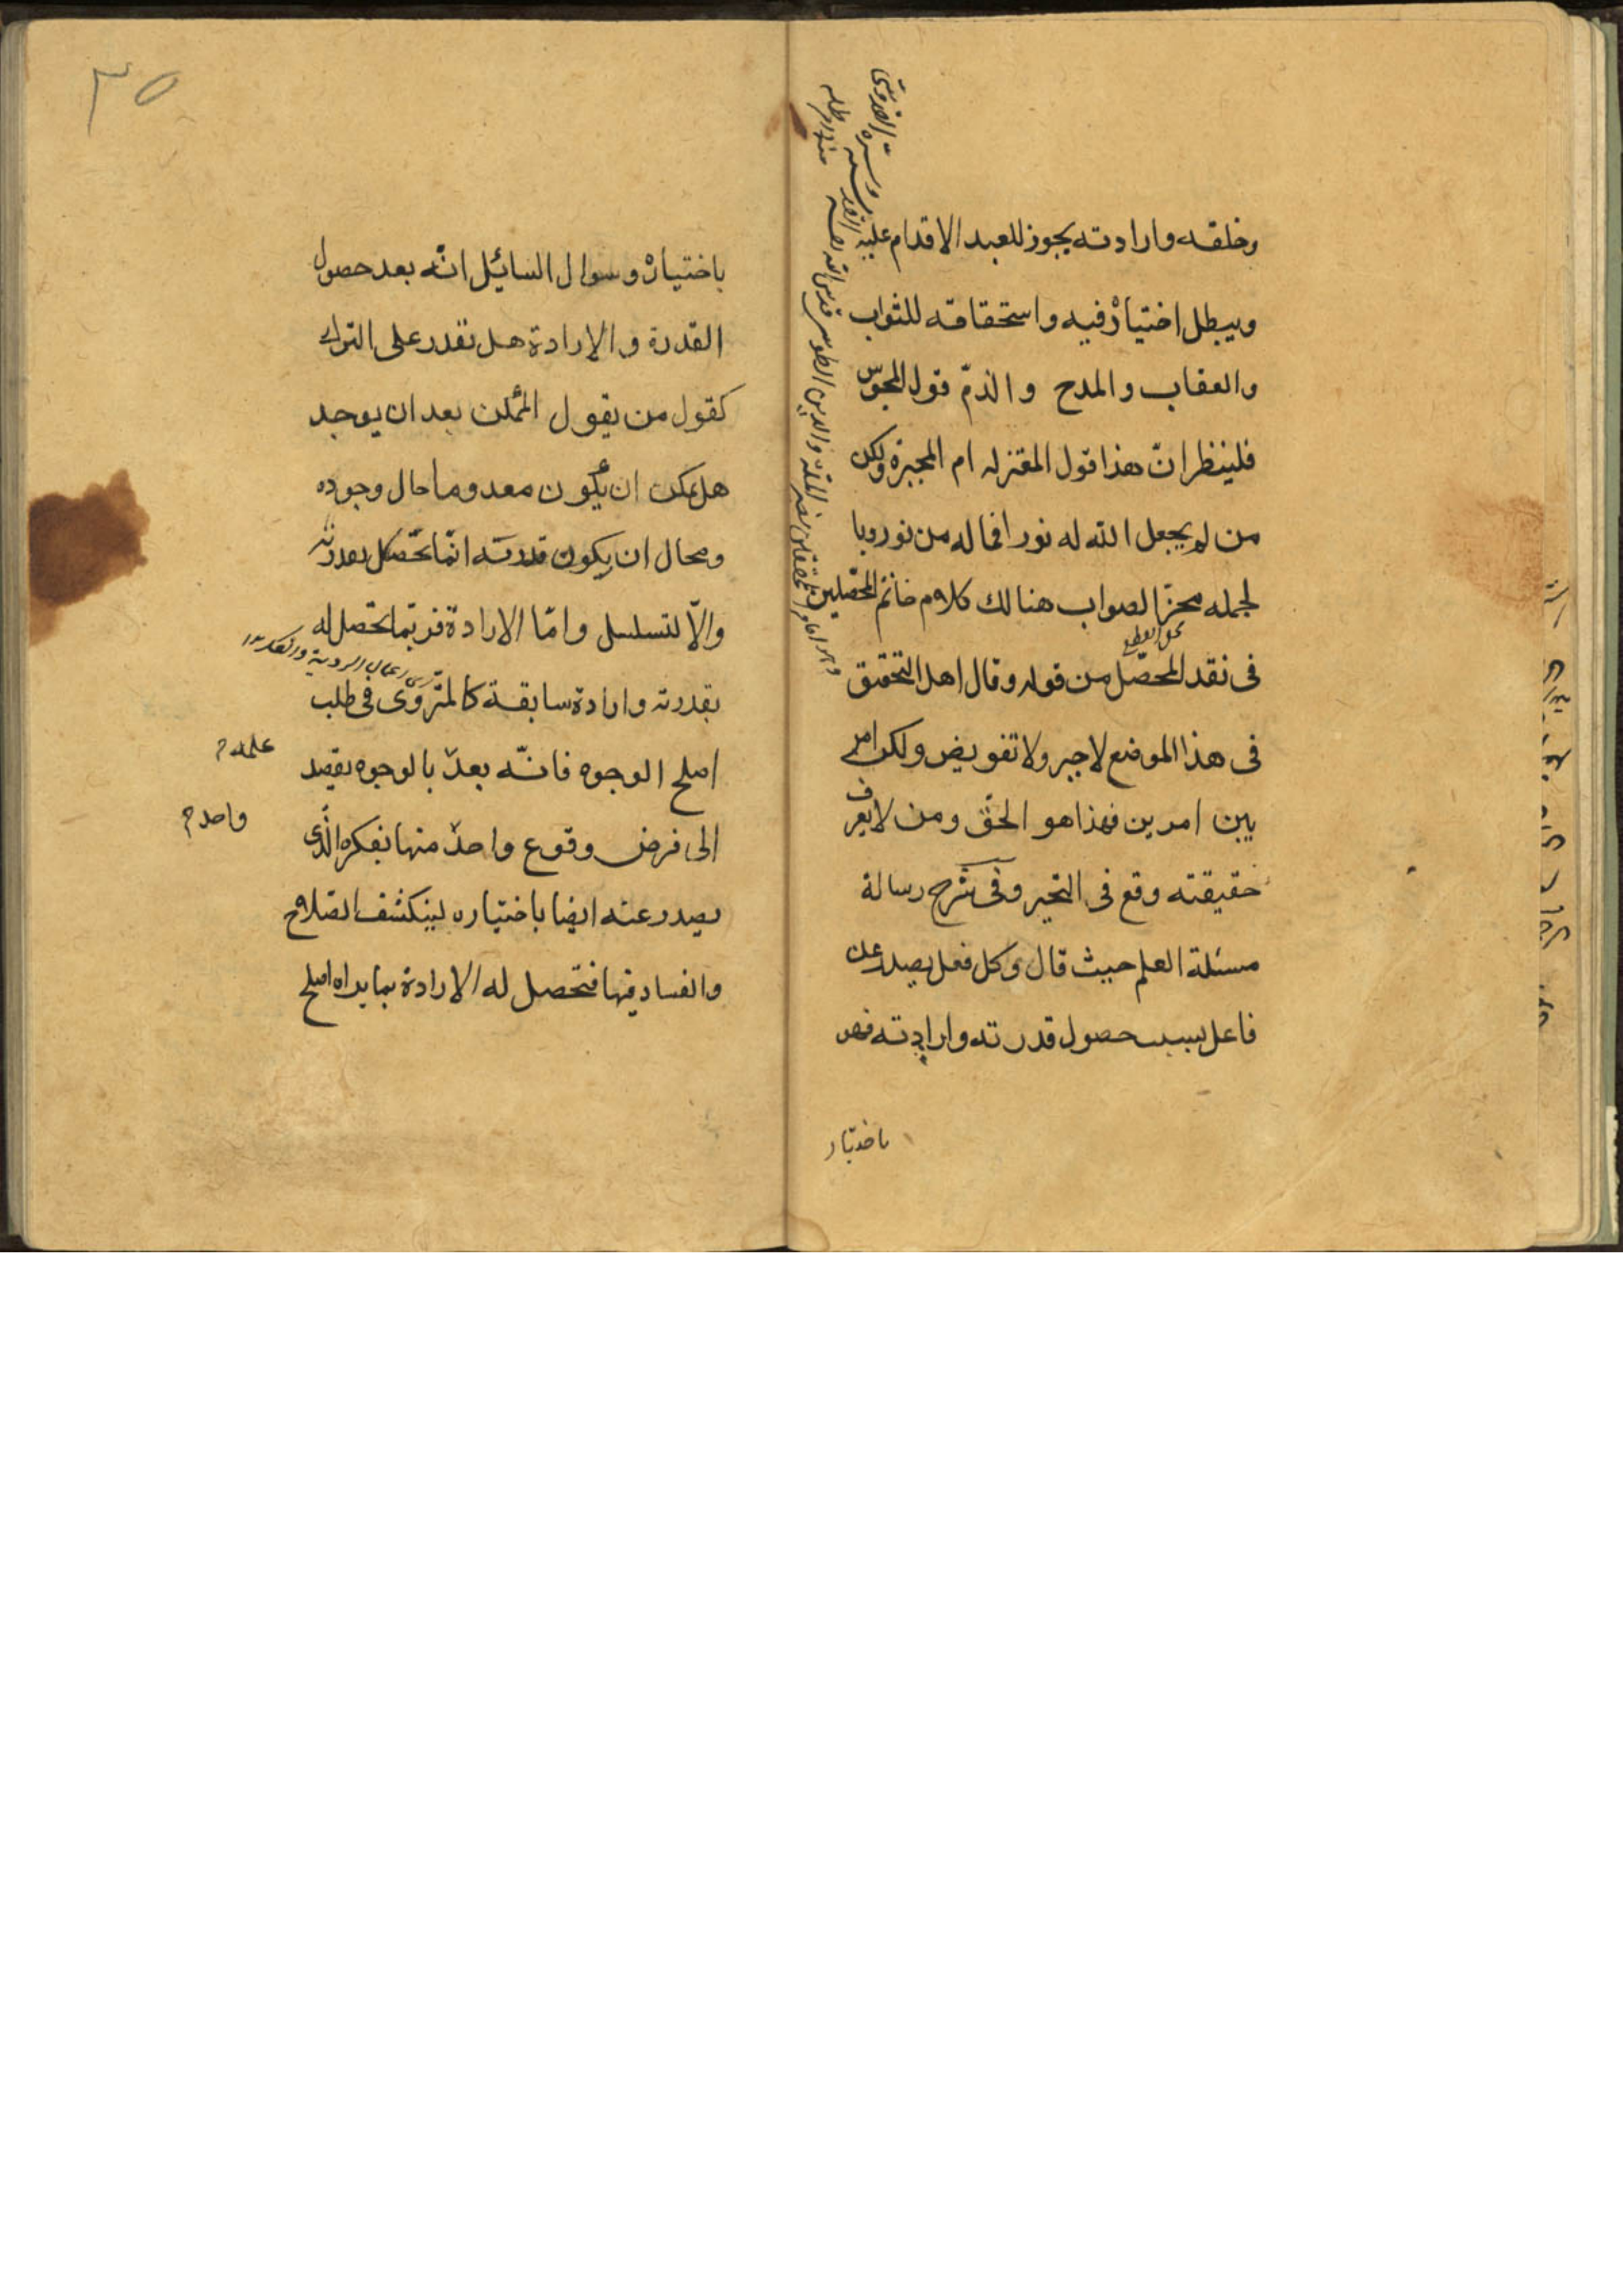 وخلقه وارادته يجوز للعبد الاقدام عليه
ويبطل اختياره فيه واستحقاقه للثواب
والعقاب والمدح والذمّ قول المجوس
فلينظر انّ هذا قول المعتزله ام المجبرة ولكن
من لم يجعل الله له نورا فما له من نور وبا
لجمله محزّ الصواب هنالك كلام خاتم المحصّلين
فى نقد المحصّل من قوله وقال اهل التحقيق
فى هذا الموضع لا جبر ولا تفويض ولكن امر
بين امرين فهذا هو الحقّ ومن لا يعرف
حقيقته وقع فى التحير وفى شرح رسالة
مسئلة العلم حيث قال وكل فعل يصدر عن
فاعل بسبب حصول قدرته وارادته فهو
باختيار
وهو افاد المحققين نصير الملة والدين الطوسى قدس الله
٣٥
باختياره وسوال السائل انّه بعد حصول
القدرة والارادة هل تقدر على الترك
كقول من يقول الممكن بعد ان يوجد
هل يمكن ان يكون معدوما حال وجوده
ومحال ان يكون قدرته انّما تحصل بقدرته
والّا لتسلسل وامّا الارادة فربّما تحصل له
بقدرته وارادة سابقة كالمتروّى فى طلب
اصلح الوجوه فانّه بعد بالوجوه يقصد
الى فرض وقوع واحد منها بفكره الّذى
يصدر عنه ايضا باختياره لينكشف الصلاح
والفساد فيها فتحصل له الارادة بما يراه اصلح
علمه م
واحد م